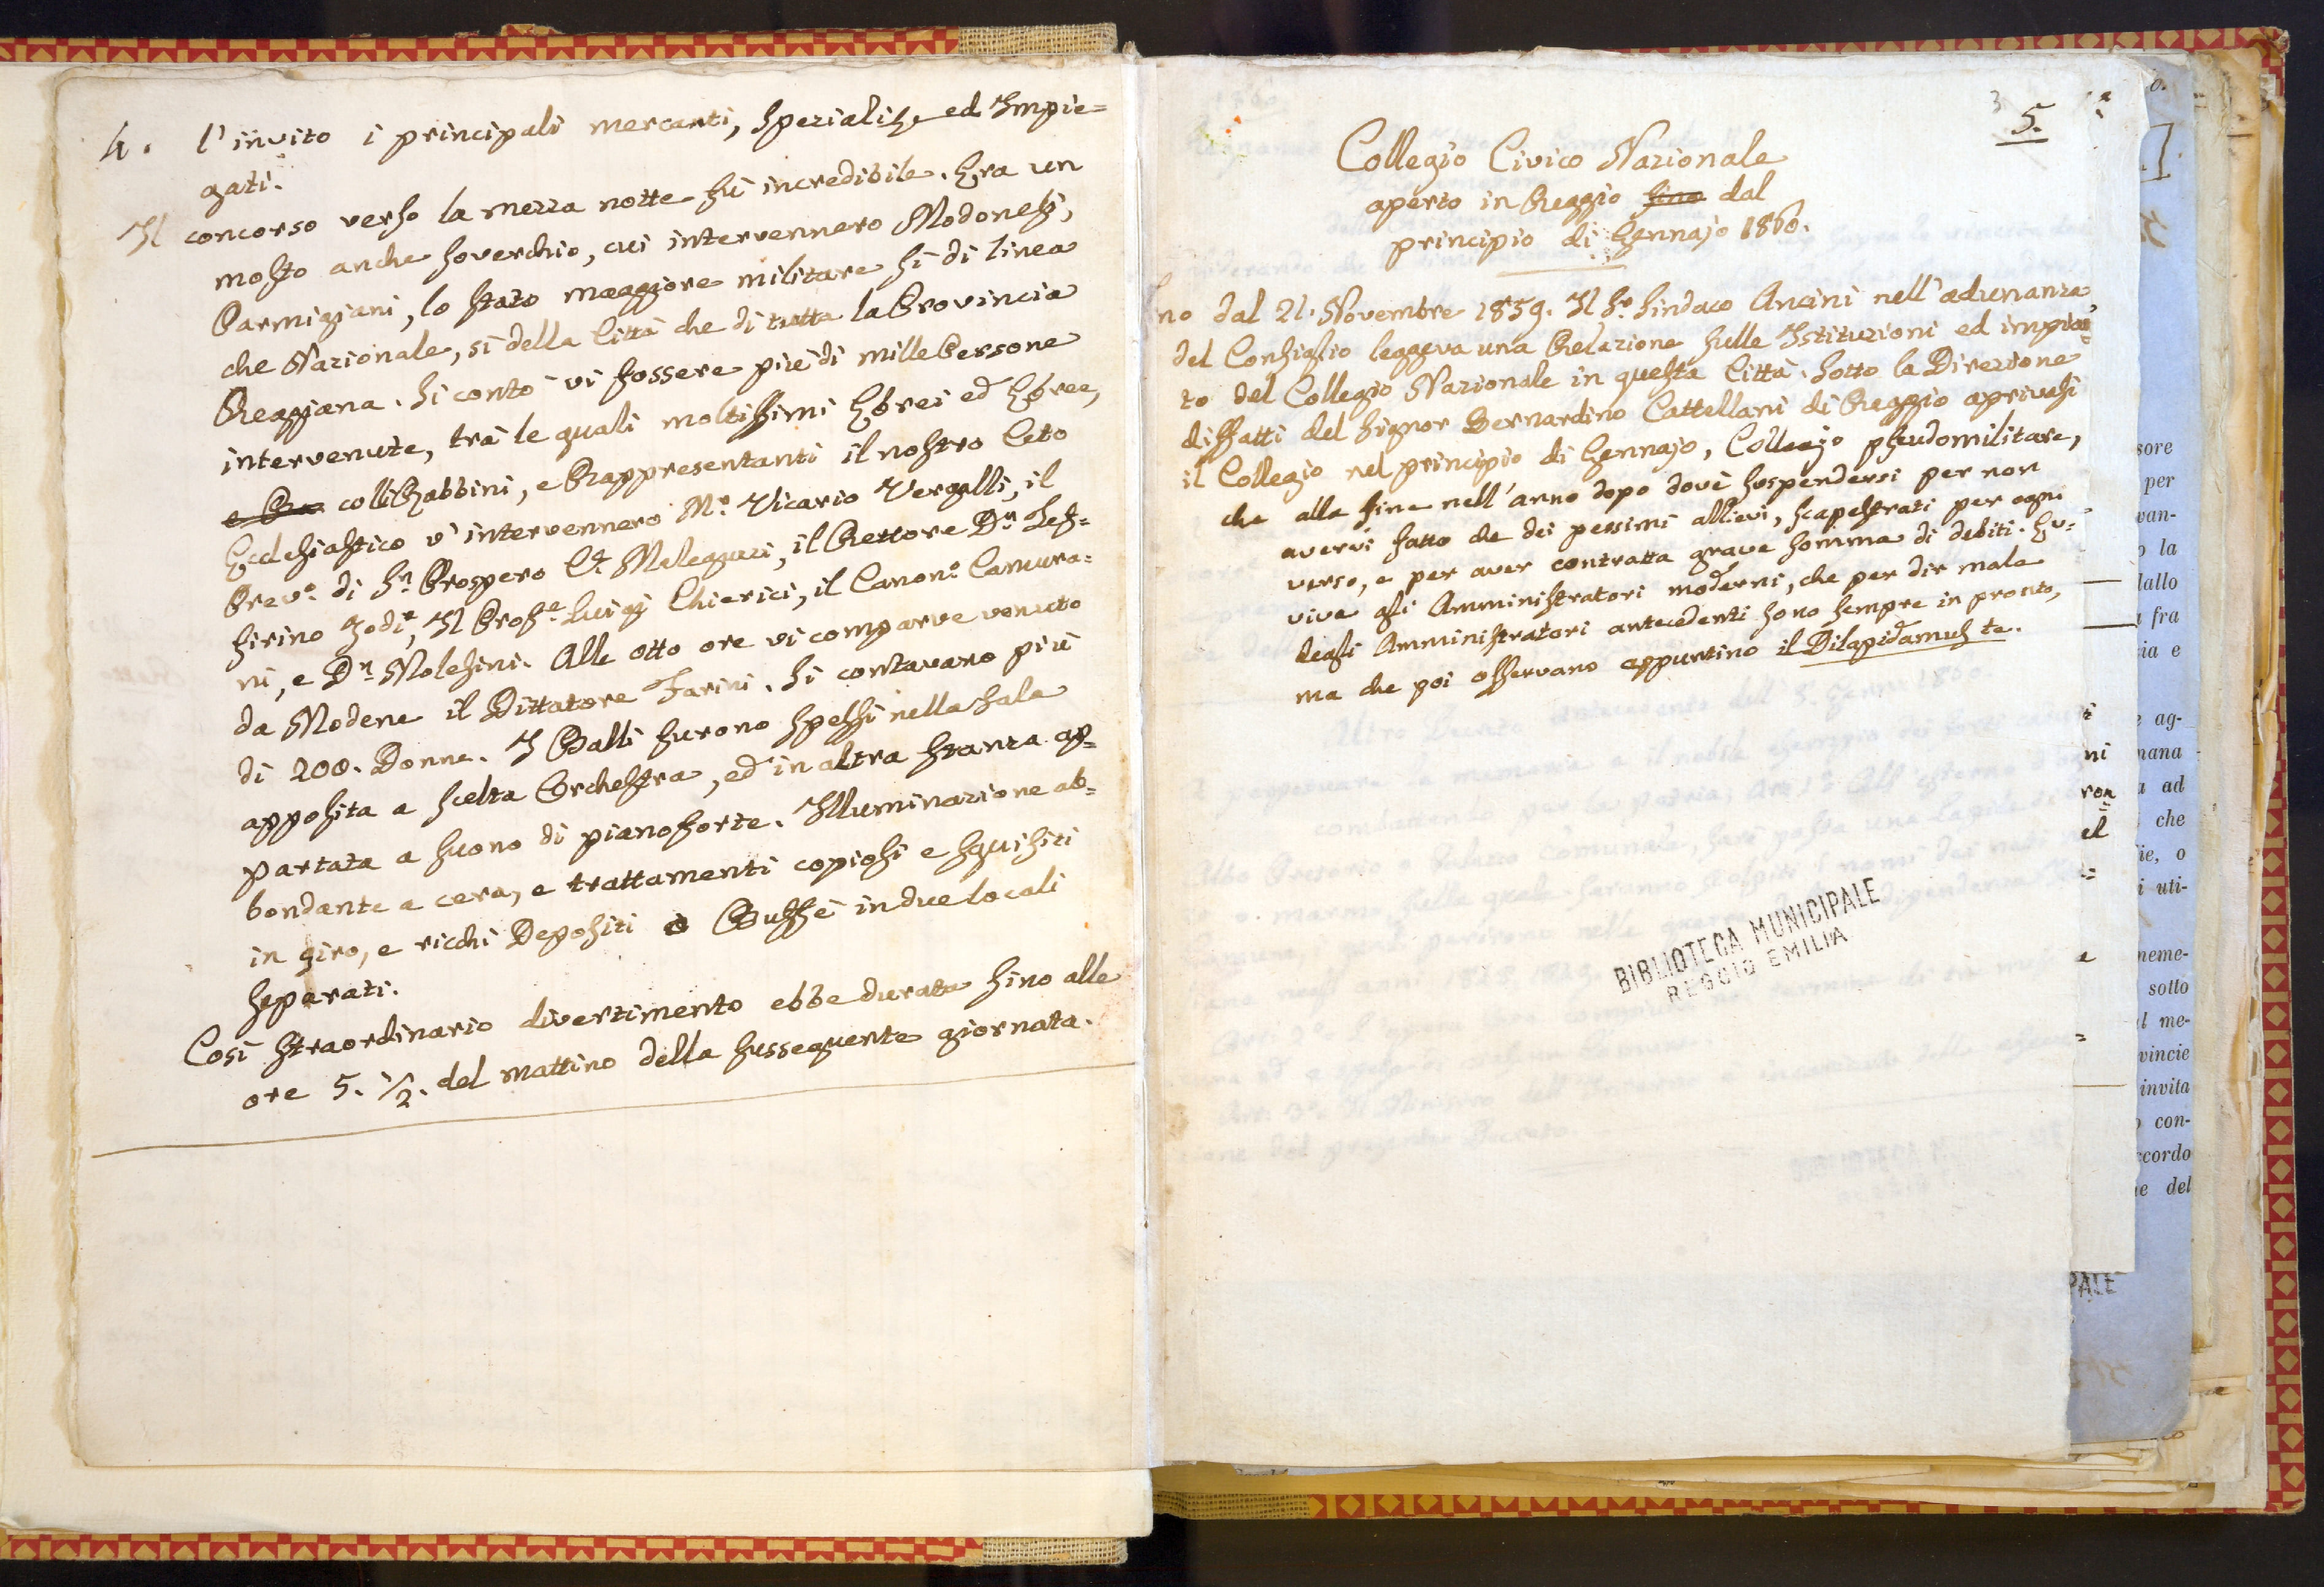 4. l'invito i principali mercanti, speziali, ed Impie=
gati.
Il concorso verso la mezza notte fù incredibile. Era un
mosto anche soverchio, cui intervennero Modonesi,
Parmigiani, lo stato maaggiore militare sì di linea
che Nazionale, sì della Città che di tutta la Provincia
Reaggiana. Si contò vi fossere più di mille Persone
intervenute, trà le quali moltissimi Ebrei ed Ebree,
colli Rabbini, e Rappresentanti il nostro Ceto
Ecclesiastico v'intervennero M.r Vicario Vergalli, il
Prev.o di S.n Prospero C.t Meleguzzi, il Rettore D.n Zef=
firino Jodi, Il Prof.e Luigi Chierici, il Canon.o Camura=
ni, e D.n Molesini. Alle otto ore vi comparve venuto
da Modena il Dittatore Farini. Si contavano più
di 200. Donne. I Balli furono spessi nella sala
apposita a scelta Orchestra, ed in altra stanza ap=
partata a suono di pianoforte. Illuminazione ab=
bondante a cera, e trattamenti copiosi e squisiti
in giro, e ricchi Depositi o Buffè in due locali
separati.
Così straordinario divertimento ebbe durata sino alle
ore 5. 1/2. del mattino della susseguente giornata.
3
5.
Collegio Civico Nazionale
aperto in Reaggio sino dal
principio di Gennajo 1860.
no dal 21. Novembre 1859. Il S.r Sindaco Ancini nell'adunanza
del Consiglio leggeva una Relazione sulle Istituzioni ed impian=
to del Collegio Nazionale in questa Città. Sotto la Direzione
diffatti del Signor Bernardino Cattellani di Reaggio aprivasi
il Collegio nel principio di Gennajo, Collegio pseudomilitare,
che alla fine nell'anno dopo dovè sospendersi per non
avervi fatto che dei pessimi allievi, scapestrati per ogni
verso, e per aver contratta grave somma di debiti. Ev=
viva gli Amministratori moderni, che per dir male
degli Amministratori antecedenti sono sempre in pronto,
ma che poi osservano appuntino il Dilapidamus te.
BIBLIOTECA MUNICIPALE
REGGIO EMILIA
sore
per
van-
la
dallo
fra
e
ag-
mana
ad
che
o
uti-
neme-
sotto
me-
vincie
invita
con-
ccordo
del
ni
el
PALE